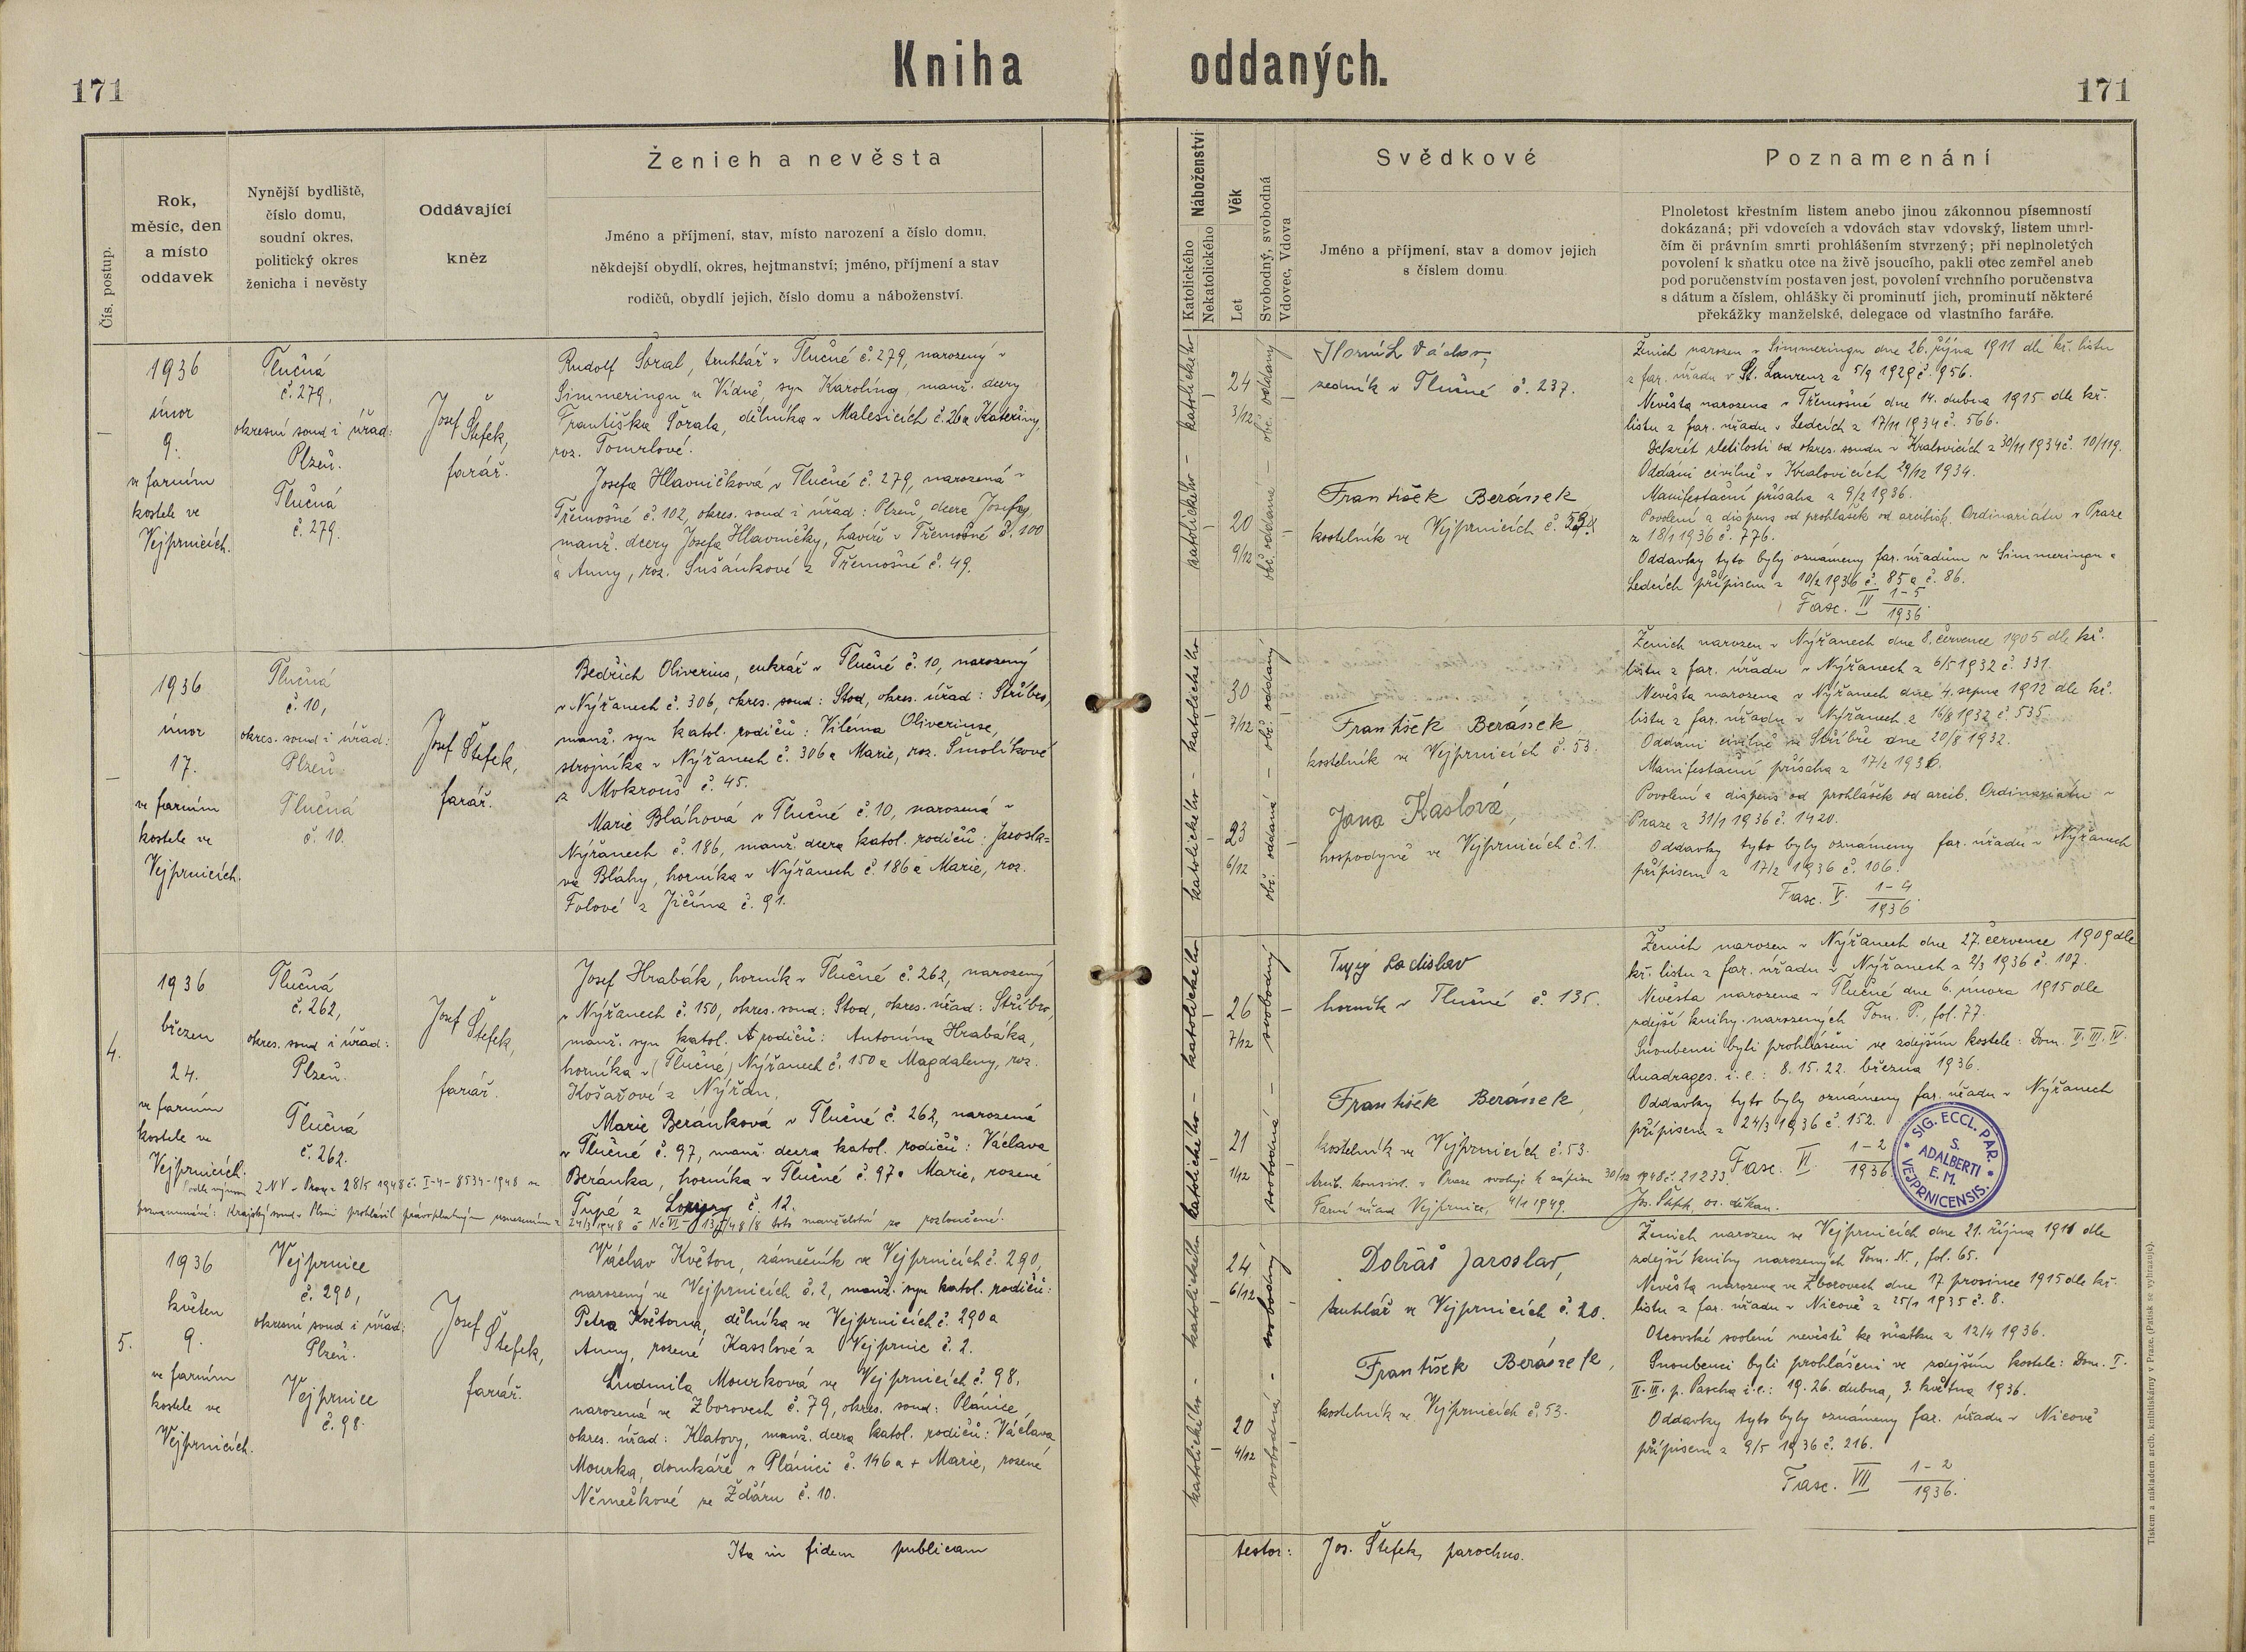 171
Kniha oddaných.
171
Čís. postup.
Rok,
měsíc, den
a místo
oddavek
Nynější bydliště,
číslo domu,
soudní okres,
politický okres
ženicha i nevěsty
Oddávající
kněz
Ženich a nevěsta
Jméno a příjmení, stav, místo narození a číslo domu,
někdejší obydlí, okres, hejtmanství; jméno, příjmení a stav
rodičů, obydlí jejich, číslo domu a náboženství.
Náboženství
Katolického
Nekatolického
Věk
Let
Svobodný, svobodná
Vdovec, Vdova
Svědkové
Jméno a příjmení, stav a domov jejich
s číslem domu.
Poznamenání
Plnoletost křestním listem anebo jinou zákonnou písemností
dokázaná; při vdovcích a vdovách stav vdovský, listem umrl-
čím či právním smrti prohlášením stvrzený; při neplnoletých
povolení k sňatku otce na živě jsoucího, pakli otec zemřel aneb
pod poručenstvím postaven jest, povolení vrchního poručenstva
s dátum a číslem, ohlášky či prominutí jich, prominutí některé
překážky manželské, delegace od vlastního faráře.
–
1936
únor
9.
ve farním
kostele ve
Vejprnicích.
Tlučná
č. 279,
okresní soud i úřad:
Plzeň.
Tlučná
č. 279.
Josef Štefek,
farář.
Rudolf Šoral, truhlář v Tlučné č. 279, narozený v
Simmeringu u Vídně, syn Karolíny, manž. dcery
Františka Šorala, dělníka v Malesicích č. 26 a Kateřiny,
roz. Tomrlové.
Josefa Hlavničková v Tlučné č. 279, narozená v
Třemošné č. 102, okres. soud i úřad: Plzeň, dcera Josefy,
manž. dcery Josefa Hlavničky, havíře v Třemošné č. 100
a Anny, roz. Sušánkové z Třemošné č. 49.
katolického – katolického
24
3/12
20
9/12
obč. oddaná – obč. oddaný
Horník Václav,
zedník v Tlučné č. 237.
František Beránek
kostelník ve Vejprnicích č. 53.
Ženich narozen v Simmeringu dne 26. října 1911 dle kř. listu
z far. úřadu v St. Laurenz z 5/9 1929 č. 956.
Nevěsta narozena v Třemošné dne 14. dubna 1915 dle kř.
listu z far. úřadu v Ledcích z 17/11 1934 č. 566.
Dekret zletilosti od okres. soudu v Kralovicích z 30/11 1934 č. 10/119.
Oddáni civilně v Kralovicích 29/12 1934.
Manifestační přísaha z 9/2 1936.
Povolení a dispens od prohlášek od arcibisk. Ordinariátu v Praze
z 18/1 1936 č. 776.
Oddavky tyto byly oznámeny far. úřadům v Simmeringu a
Ledcích přípisem z 10/2 1936 č. 85 a č. 86.
Fasc. III 1–5
1936.
–
1936
únor
17.
ve farním
kostele ve
Vejprnicích.
Tlučná
č. 10,
okres. soud i úřad:
Plzeň
Tlučná
č. 10.
Josef Štefek,
farář.
Bedřich Oliverius, cukrář v Tlučné č. 10, narozený
v Nýřanech č. 306, okres. soud: Stod, okres. úřad: Stříbro,
manž. syn katol. rodičů: Viléma Oliveriuse,
strojníka v Nýřanech č. 306 a Marie, roz. Smolíkové
z Mokrouš č. 45.
Marie Bláhová v Tlučné č. 10, narozená v
Nýřanech č. 186, manž. dcera katol. rodičů: Jarosla-
va Bláhy, horníka v Nýřanech č. 186 a Marie, roz.
Folové z Jičína č. 91.
katolického – katolického
30
7/12
23
6/12
obč. oddaná – obč. oddaný
František Beránek
kostelník ve Vejprnicích č. 53.
Jana Kaslová,
hospodyně ve Vejprnicích č. 1.
Ženich narozen v Nýřanech dne 8. července 1905 dle kř.
listu z far. úřadu v Nýřanech z 6/5 1932 č. 331.
Nevěsta narozena v Nýřanech dne 4. srpna 1912 dle kř.
listu z far. úřadu v Nýřanech z 16/8 1932 č. 535
Oddáni civilně ve Stříbře dne 20/8 1932.
Manifestační přísaha z 17/2 1936.
Povolení a dispens od prohlášek od arcib. Ordinariátu v
Praze z 31/1 1936 č. 1420.
Oddavky tyto byly oznámeny far. úřadu v Nýřanech
přípisem z 17/2 1936 č. 106.
Fasc. V 1–4
1936.
4.
1936
březen
24.
ve farním
kostele ve
Vejprnicích.
Tlučná
č. 262,
okres. soud i úřad:
Plzeň.
Tlučná
č. 262.
Josef Štefek,
farář.
Josef Hrabák, horník v Tlučné č. 262, narozený
v Nýřanech č. 150, okres. soud: Stod, okres. úřad: Stříbro,
manž. syn katol. rodičů: Antonína Hrabáka,
horníka v (Tlučné) Nýřanech č. 150 a Magdaleny, roz.
Košařové z Nýřan.
Marie Beránková v Tlučné č. 262, narozená
v Tlučné č. 97, manž. dcera katol. rodičů: Václava
Beránka, horníka v Tlučné č. 97 a Marie, rozené
Tupé z č. 12.
Podle výnosu ZNV v Praze z 28/5 1948 č. I-4-8534-1948 se
poznamenává: Krajský soud v Plzni prohlásil pravoplatným usnesením z
24/3 1948 č. toto manželství za rozloučené.
katolického – katolického
26
7/12
21
1/12
svobodná – svobodný
Tupý Ladislav
horník v Tlučné č. 135.
František Beránek,
kostelník ve Vejprnicích č. 53.
Arcib. konsist. v Praze svoluje k zápisu 30/12 1948 č. 21233.
Farní úřad Vejprnice, 4/1 1949. Jos. Štefek, os. děkan.
Ženich narozen v Nýřanech dne 27. července 1909 dle
kř. listu z far. úřadu v Nýřanech z 2/3 1936 č. 107.
Nevěsta narozena v Tlučné dne 6. února 1915 dle
zdejší knihy narozených Tom. P., fol. 77.
Snoubenci byli prohlášeni ve zdejším kostele: Dom. II. III. IV.
Quadrages. i. e.: 8. 15. 22. března 1936.
Oddavky tyto byly oznámeny far. úřadu v Nýřanech
přípisem z 24/3 1936 č. 152.
Fasc. VI 1–2
1936.
SIG. ECCL. PAR.
S.
ADALBERTI
E. M.
VEJPRNICENSIS.
5.
1936
květen
9.
ve farním
kostele ve
Vejprnicích.
Vejprnice
č. 290,
okresní soud i úřad:
Plzeň.
Vejprnice
č. 98.
Josef Štefek,
farář.
Václav Květon, zámečník ve Vejprnicích č. 290,
narozený ve Vejprnicích č. 2, manž. syn katol. rodičů:
Petra Květona, dělníka ve Vejprnicích č. 290 a
Anny, rozené Kasslové z Vejprnic č. 2.
Ludmila Mourková ve Vejprnicích č. 98,
narozená ve Zborovech č. 79, okres. soud: Plánice,
okres. úřad: Klatovy, manž. dcera katol. rodičů: Václava
Mourka, domkáře v Plánici č. 146 a + Marie, rozené
Němečkové ze Žďáru č. 10.
katolického – katolického
24
6/12
20
4/12
svobodná – svobodný
Dolráš Jaroslav,
truhlář ve Vejprnicích č. 20.
František Beránek,
kostelník ve Vejprnicích č. 53.
Ženich narozen ve Vejprnicích dne 21. října 1911 dle
zdejší knihy narozených Tom. N., fol. 65.
Nevěsta narozena ve Zborovech dne 17 prosince 1915 dle kř.
listu z far. úřadu v Nicově z 25/1 1935 č. 8.
Otcovské svolení nevěstě ke sňatku z 12/4 1936.
Snoubenci byli prohlášeni ve zdejším kostele: Dom. I.
II. III. p. Pascha i. e.: 19. 26. dubna, 3. května 1936.
Oddavky tyto byly oznámeny far. úřadu v Nicově
přípisem z 9/5 1936 č. 216.
Fasc. VII 1–2
1936.
Ita in fidem publicam testor: Jos. Štefek, parochus.
Tiskem a nákladem arcib. knihtiskárny v Praze. (Patisk se vyhrazuje).